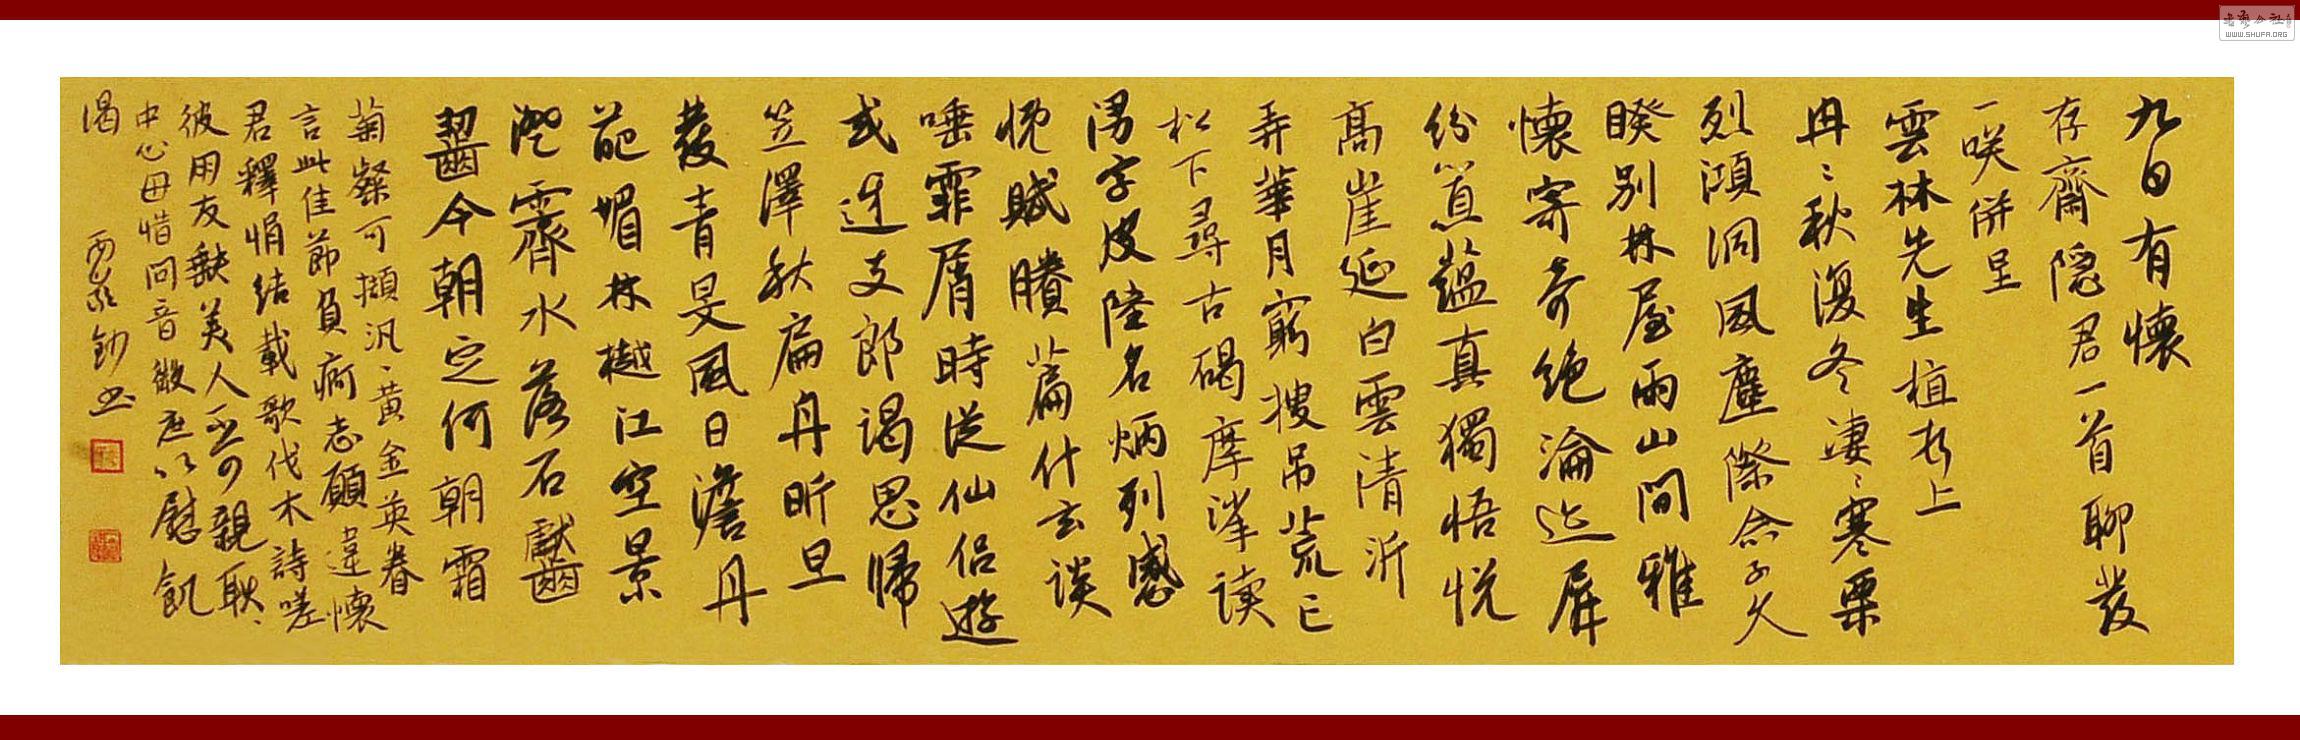 九日有懷
存齋隱君一首聊發
一咲併呈
雲林先生植頓首上
冉〻秋復冬淒〻寒栗
烈澒洞風塵際念子久
睽別林屋雨山間雅
懷寄奇絕淪迹屏
紛篁蘊真獨悟悅
高崖延白雲清沂
弄華月窮搜吊荒亡
松下尋古碣摩挲讀
漫字皮陸名炳列感
悦賦賸篇什玄談
唾霏屑時從仙侶遊
或迓支郎謁思歸
笠澤秋扁舟昕旦
發青旻風日澹丹
葩媚林樾江空景
澄霽水落石齾
齧今朝定何朝霜
菊粲可擷汎〻黃金英眷
言此佳節負痾志願違懷
君釋悁結載歌伐木詩嗟
彼用友缺美人不可親耿〻
中心毋惜問音徽庶以慰飢
渴
鈔书
书艺公社
WWW.SHUFA.ORG